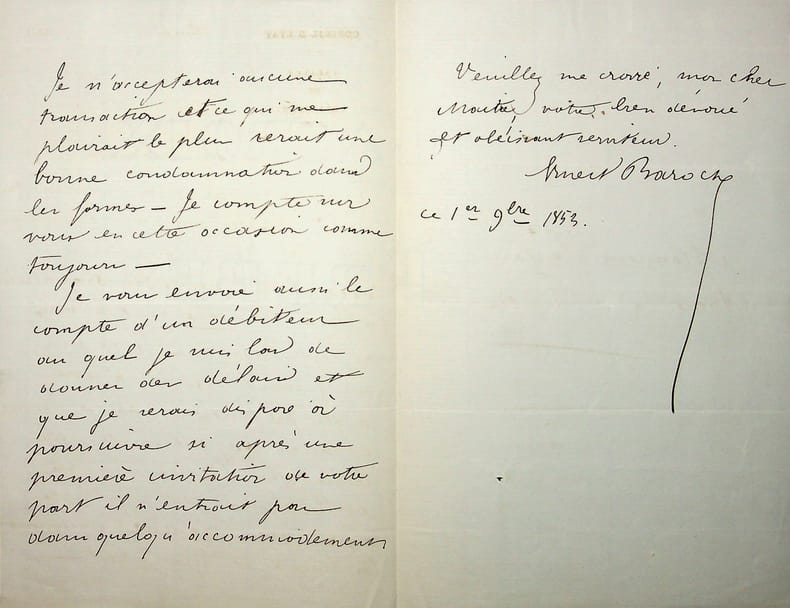 Je n'accepterai aucune
transaction et ce qui me
plairait le plus serait une
bonne condamnation dans
les formes — Je compte sur
vous en cette occasion comme
toujours —
Je vous envoie aussi le
compte d'un débiteur
au quel je suis las de
donner des délais et
que je serais disposé à
poursuivre si après une
première invitation de votre
part il n'entrait pas
dans quelqu'accommodement
Veuillez me croire, mon cher
Maitre, votre bien dévoué
et obéissant serviteur.
Ernest Baroche
ce 1er 9bre 1853.
CONSEIL D'ETAT